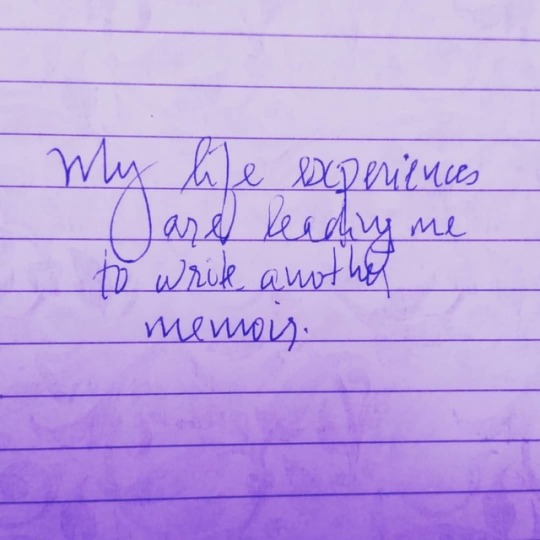 My life experiences
are leading me
to write another
memoir.